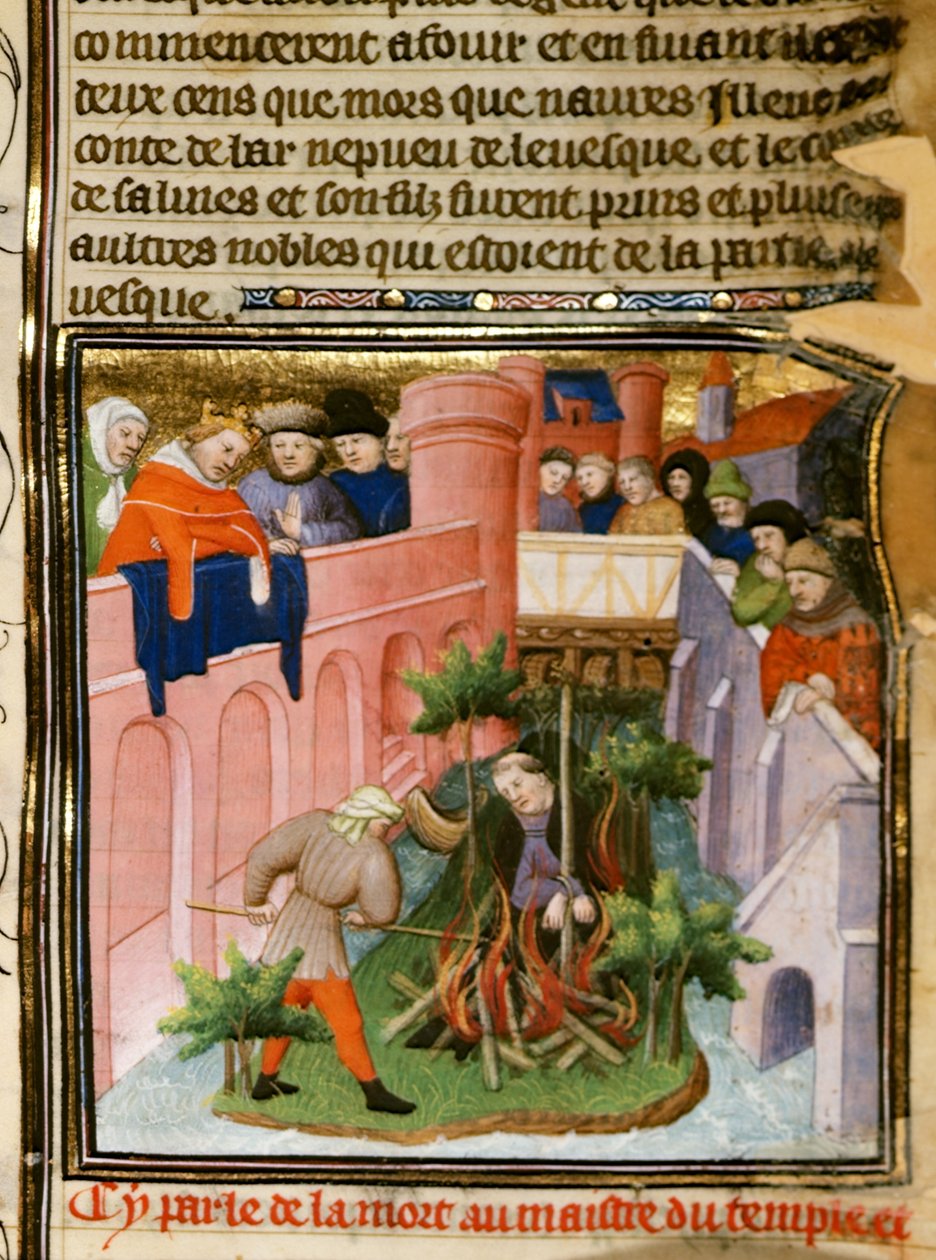 commencerent a fouir et en fuiant
deux cens que mors que naures
conte de bar nepueu de leuesque et le
de salmes et son filz furent prins et pluseurs
aultres nobles qui estoient de la partie
uesque.
Cy parle de la mort au maistre du temple et